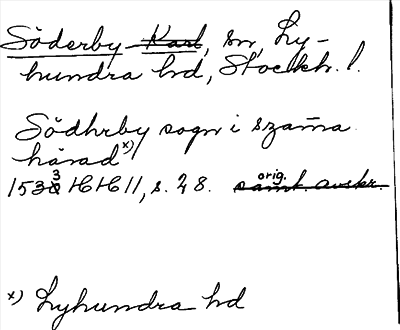 Söderby-Karl, sn, Ly-
hundra hd, Stockh. l.
Södhrby sogn i szama
härad x)
1533 HH 11, s. 28. orig. samt. avskr.
x) Lyhundra hd